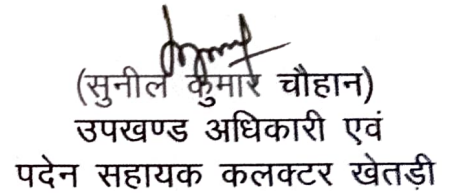 (सुनील कुमार चौहान)
उपखण्ड अधिकारी एवं
पदेन सहायक कलक्टर खेतड़ी